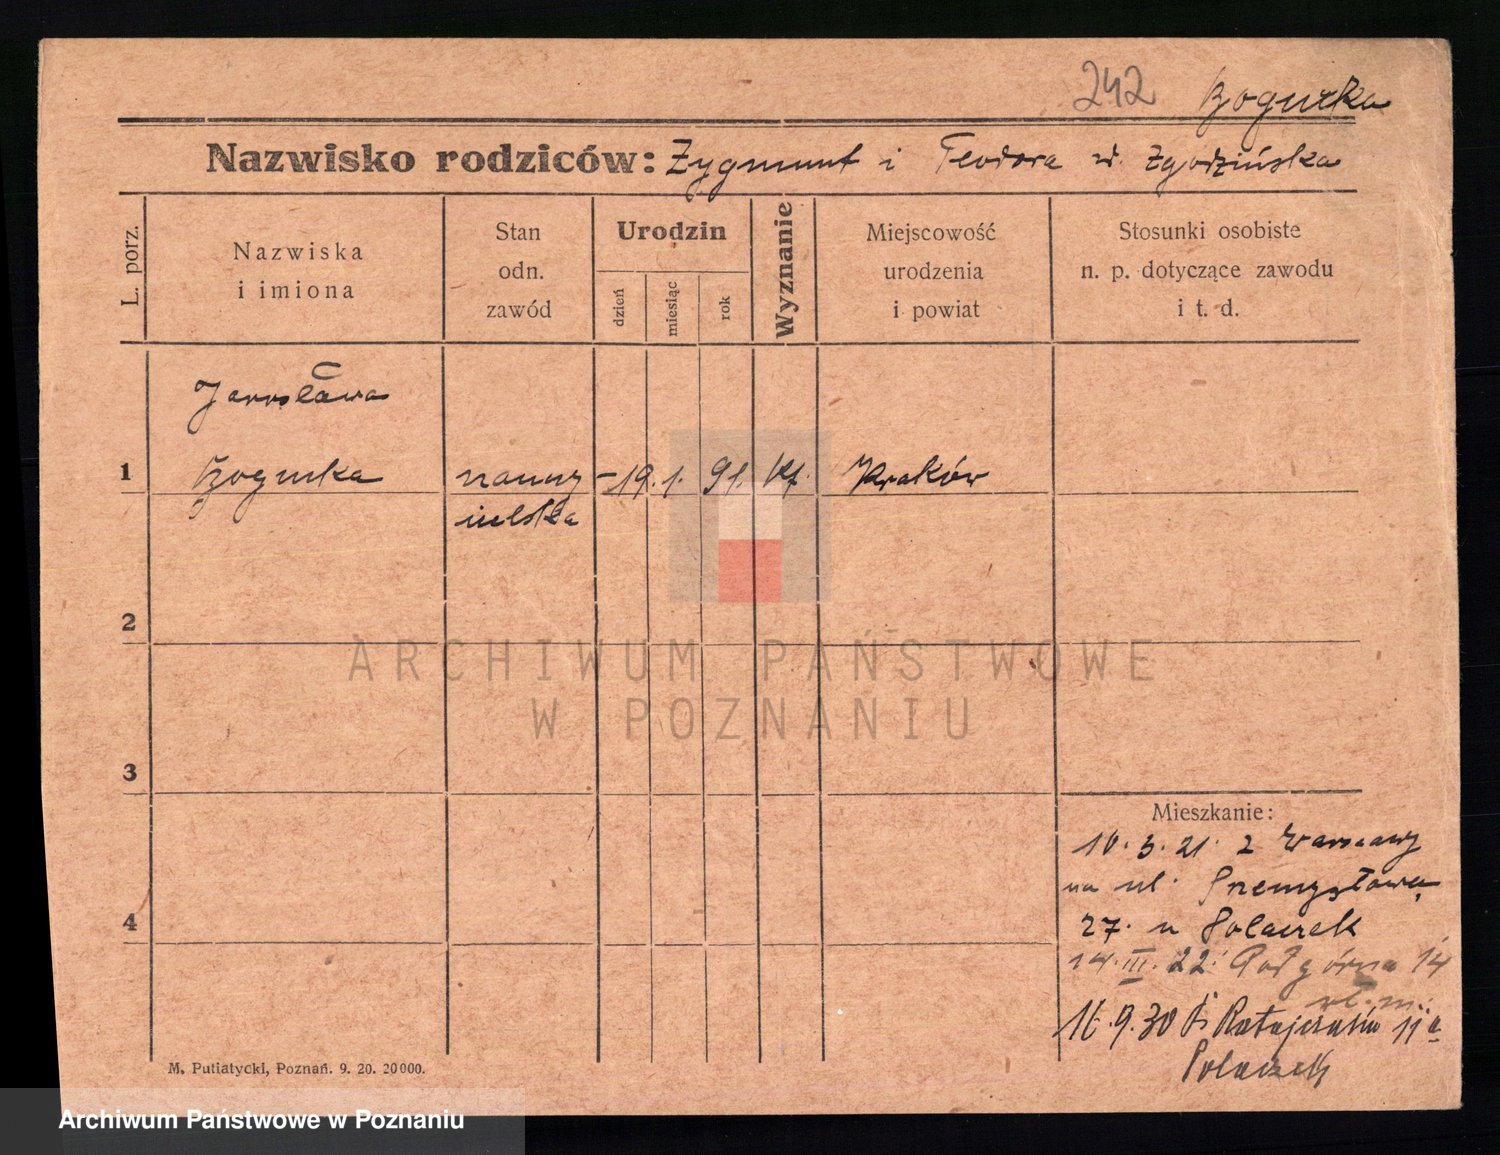 242 Bogucka
Nazwisko rodziców: Zygmunt i Teodora z d. Zgodzińska
L. porz.
Nazwiska
i imiona
Stan
odn.
zawód
Urodzin
dzień
miesiąc
rok
Wyznanie
Miejscowość
urodzenia
i powiat
Stosunki osobiste
n. p. dotyczące zawodu
i t. d.
Jarosława
1 Bogucka nauczy- 19. 1. 91. Kraków
cielska
2
3
4
Mieszkanie:
10. 3. 21. z Warszawy
na ul. Przemysłową
27. u Polaczek
14. III. 22. Podgórna 14
16. 9. 30 Ratajczaka 11a
Polaczek
M. Putiatycki, Poznań. 9. 20. 20000.
ARCHIWUM PAŃSTWOWE
W POZNANIU
Archiwum Państwowe w Poznaniu